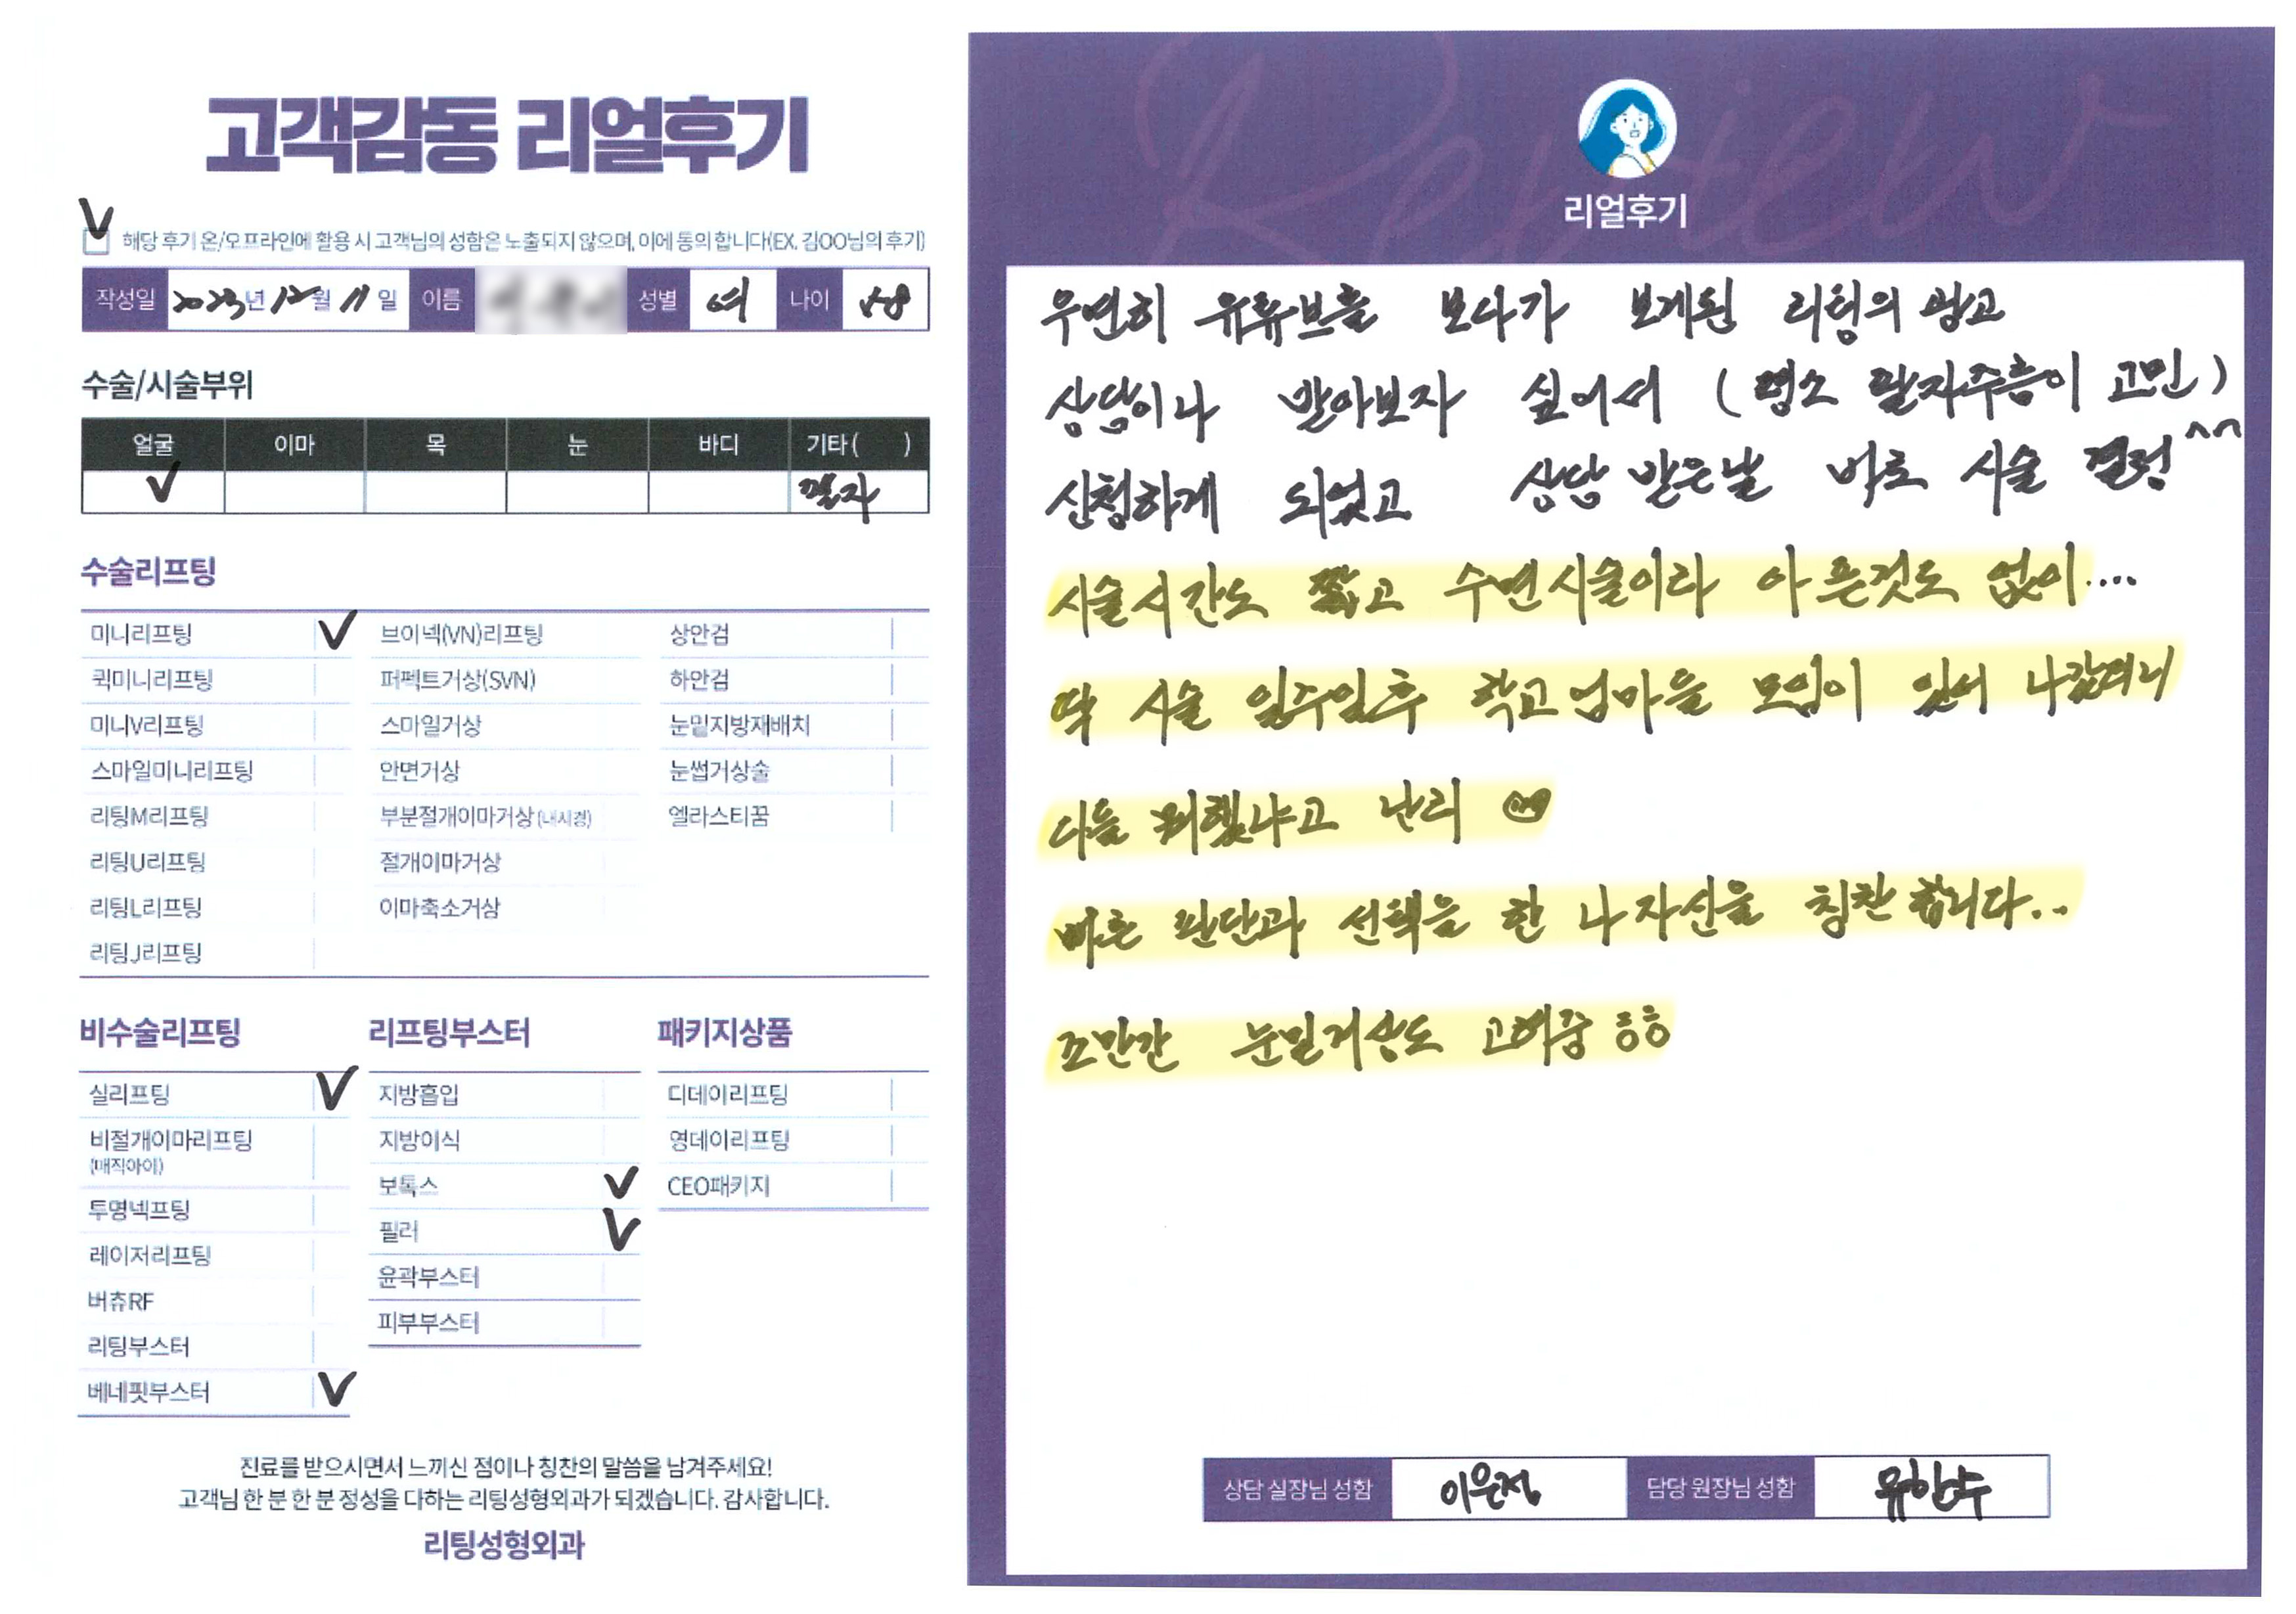 고객감동 리얼후기
V 해당 후기 온/오프라인에 활용 시 고객님의 성함은 노출되지 않으며, 이에 동의 합니다(EX. 김OO님의 후기)
작성일 2023년 12월 11일 이름 성별 여 나이 58
수술/시술부위
얼굴 이마 목 눈 바디 기타( )
V 팔자
수술리프팅
미니리프팅 V 브이넥(VN)리프팅 상안검
퀵미니리프팅 퍼펙트거상(SVN) 하안검
미니V리프팅 스마일거상 눈밑지방재배치
스마일미니리프팅 안면거상 눈썹거상술
리팅M리프팅 부분절개이마거상 (내시경) 엘라스티꿈
리팅U리프팅 절개이마거상
리팅L리프팅 이마축소거상
리팅J리프팅
비수술리프팅 리프팅부스터 패키지상품
실리프팅 V 지방흡입 디데이리프팅
비절개이마리프팅 지방이식 영데이리프팅
(매직아이)
보톡스 V CEO패키지
투명넥프팅 필러 V
레이저리프팅 윤곽부스터
버츄RF 피부부스터
리팅부스터
베네핏부스터 V
진료를 받으시면서 느끼신 점이나 칭찬의 말씀을 남겨주세요!
고객님 한 분 한 분 정성을 다하는 리팅성형외과가 되겠습니다. 감사합니다.
리팅성형외과
Review
리얼후기
우연히 유튜브를 보다가 보게된 리팅의 광고
상담이나 받아보자 싶어서 (평소 팔자주름이 고민)
신청하게 되었고 상담 받은날 바로 시술 결정 ^^
시술시간도 짧고 수면시술이라 아픈것도 없이....
딱 시술 일주일후 학교 엄마들 모임이 있어 나갔더니
다들 뭐했냐고 난리
빠른 판단과 선택을 한 나 자신을 칭찬 합니다..
조만간 눈밑거상도 고려중 ㅎㅎ
상담 실장님 성함 이은정 담당 원장님 성함